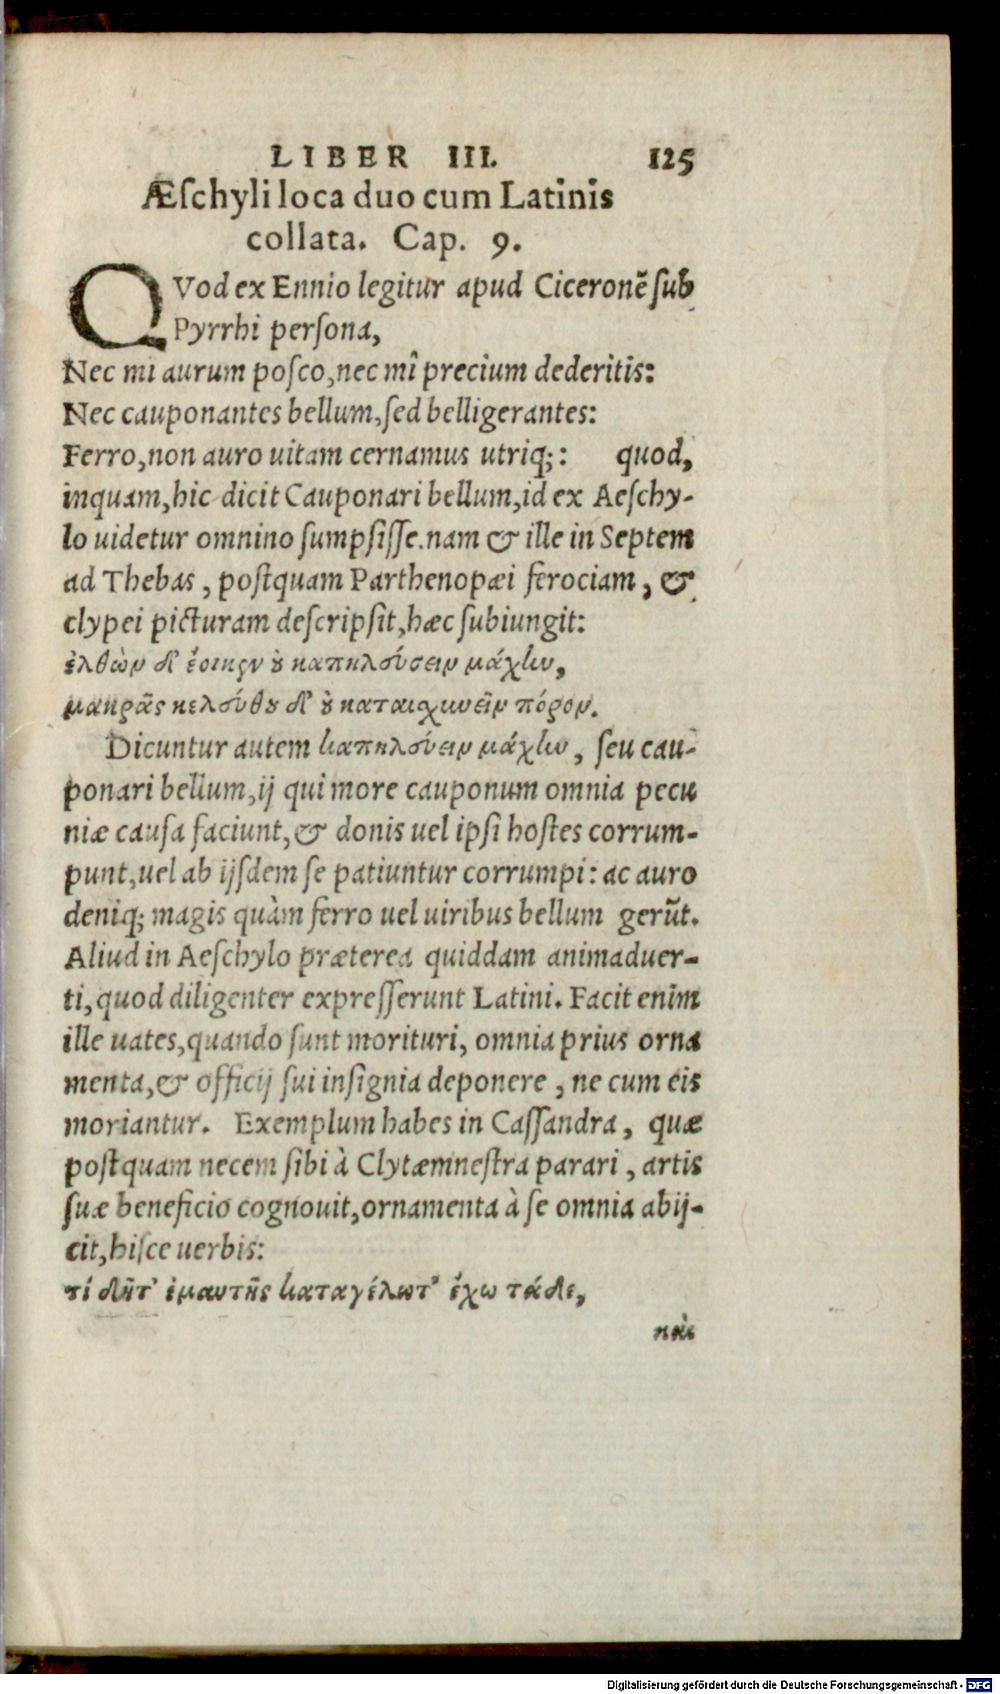 LIBER III. 125
Æſchyli loca duo cum Latinis
collata. Cap. 9.
QVod ex Ennio legitur apud Ciceronẽ ſub
Pyrrhi perſona,
Nec mi aurum poſco, nec mî precium dederitis:
Nec cauponantes bellum, ſed belligerantes:
Ferro, non auro uitam cernamus utriq;: quod,
inquam, hic dicit Cauponari bellum, id ex Aeſchy-
lo uidetur omnino ſumpſiſſe. nam & ille in Septem
ad Thebas, poſtquam Parthenopæi ferociam, &
clypei picturam deſcripſit, hæc ſubiungit:
ἐλθὼν δ' ἔοικεν ȣ καπηλεύσειν μάχην,
μακρᾶς κελεύθȣ δ' ȣ καταιχυνεῖν πόρον.
Dicuntur autem καπηλεύειν μάχην, ſeu cau-
ponari bellum, ij qui more cauponum omnia pecu
niæ cauſa faciunt, & donis uel ipſi hoſtes corrum-
punt, uel ab ijſdem ſe patiuntur corrumpi: ac auro
deniq; magis quàm ferro uel uiribus bellum gerũt.
Aliud in Aeſchylo præterea quiddam animaduer-
ti, quod diligenter expreſſerunt Latini. Facit enim
ille uates, quando ſunt morituri, omnia prius orna
menta, & officij ſui inſignia deponere, ne cum eis
moriantur. Exemplum habes in Caſſandra, quæ
poſtquam necem ſibi à Clytæmneſtra parari, artis
ſuæ beneficio cognouit, ornamenta à ſe omnia abij-
cit, hiſce uerbis:
τί δῆτ' ἐμαυτῆς καταγέλωτ' ἔχω τάδε,
καὶ
Digitalisierung gefördert durch die Deutsche Forschungsgemeinschaft - DFG